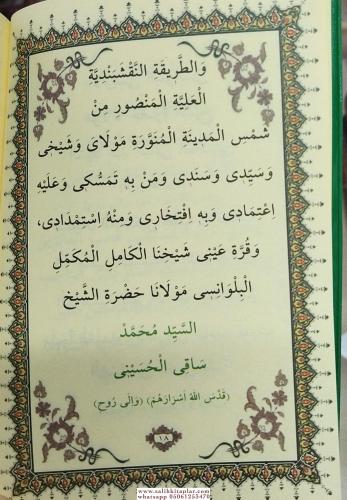 وَالطَّرِيقَةِ النَّقْشْبَنْدِيَّةِ
الْعَلِيَّةِ الْمَنْصُورِ مِنْ
شَمْسِ الْمَدِينَةِ الْمُنَوَّرَةِ مَوْلَاىَ وَشَيْخِى
وَسَيِّدِى وَسَنَدِى وَمَنْ بِهِ تَمَسُّكِى وَعَلَيْهِ
اِعْتِمَادِى وَبِهِ اِفْتِخَارِى وَمِنْهُ اِسْتِمْدَادِى،
وَقُرَّةِ عَيْنِى شَيْخِنَا الْكَامِلِ الْمُكَمِّلِ
الْبِلْوَانِسِى مَوْلَانَا حَضْرَةِ الشَّيْخِ
السَّيِّدِ مُحَمَّدْ
سَاقِى الْحُسَيْنِى
(قَدَّسَ اللّٰهُ اَسْرَارَهُمْ) (وَاِلَى رُوحِ)
١٨
www.salihkitaplar.com
whatsapp 05061255470